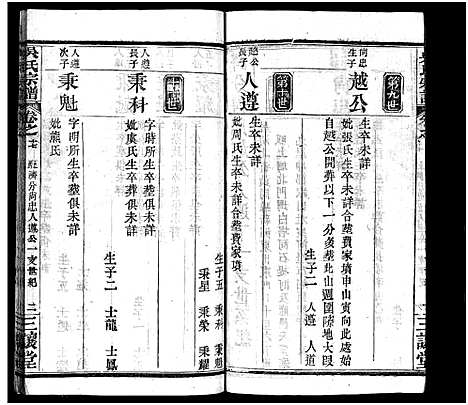 第九世
尚忠長子 越公
生卒未詳
妣張氏生卒未詳合葬費家墳申山寅向此處始
自越公開葬以下一分矣葬此山週圍陸地大段
生子二 人遵 人道
第十世
越公長子 人遵
生卒未詳
妣周氏生卒未詳合葬費家項
生子五 秉科 秉魁
秉星 秉榮 秉耀
人遵長子 秉科
字時所生卒葬俱未詳
妣虞氏生卒葬俱未詳
生子二 士龍 士鳳
人遵次子 秉魁
字明所生卒葬俱未詳
妣熊氏
吳氏宗譜
卷之
尚忠人遵公一支世紀
三讓堂
三讓堂